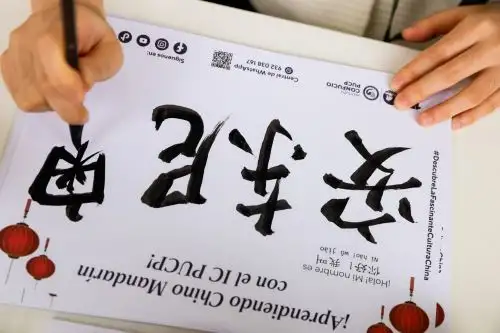 ¡Aprendiendo Chino Mandarín
con el IC PUCP!
¡Hola! Mi nombre es
Nǐ hǎo! wǒ jiào
你好！我叫
安东尼
#DescubreLaFascinanteCulturaChina
CONFUCIO
PUCP
Central de WhatsApp
932 038 167
Síguenos en: